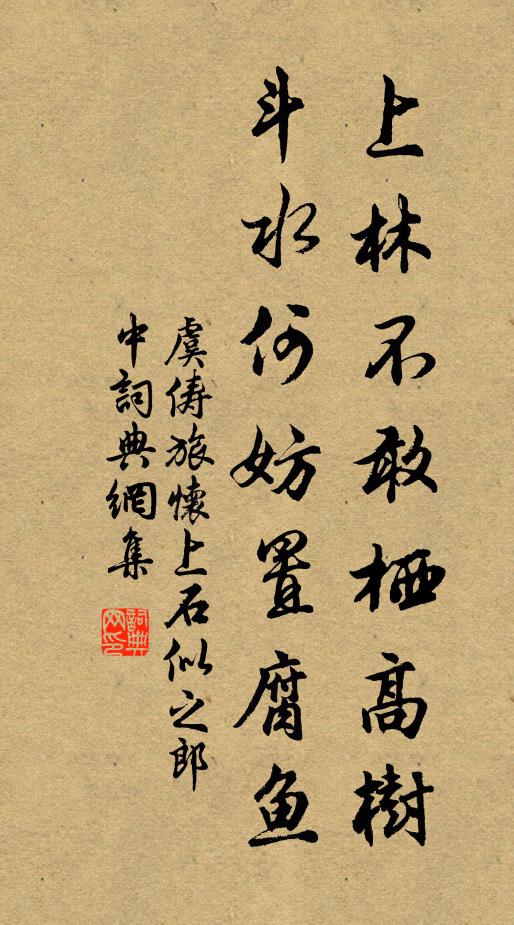 上林不敢栖高樹
斗水何妨置腐鱼
虞儔旅懷上石似之郎
中詞典網集
詞典网印